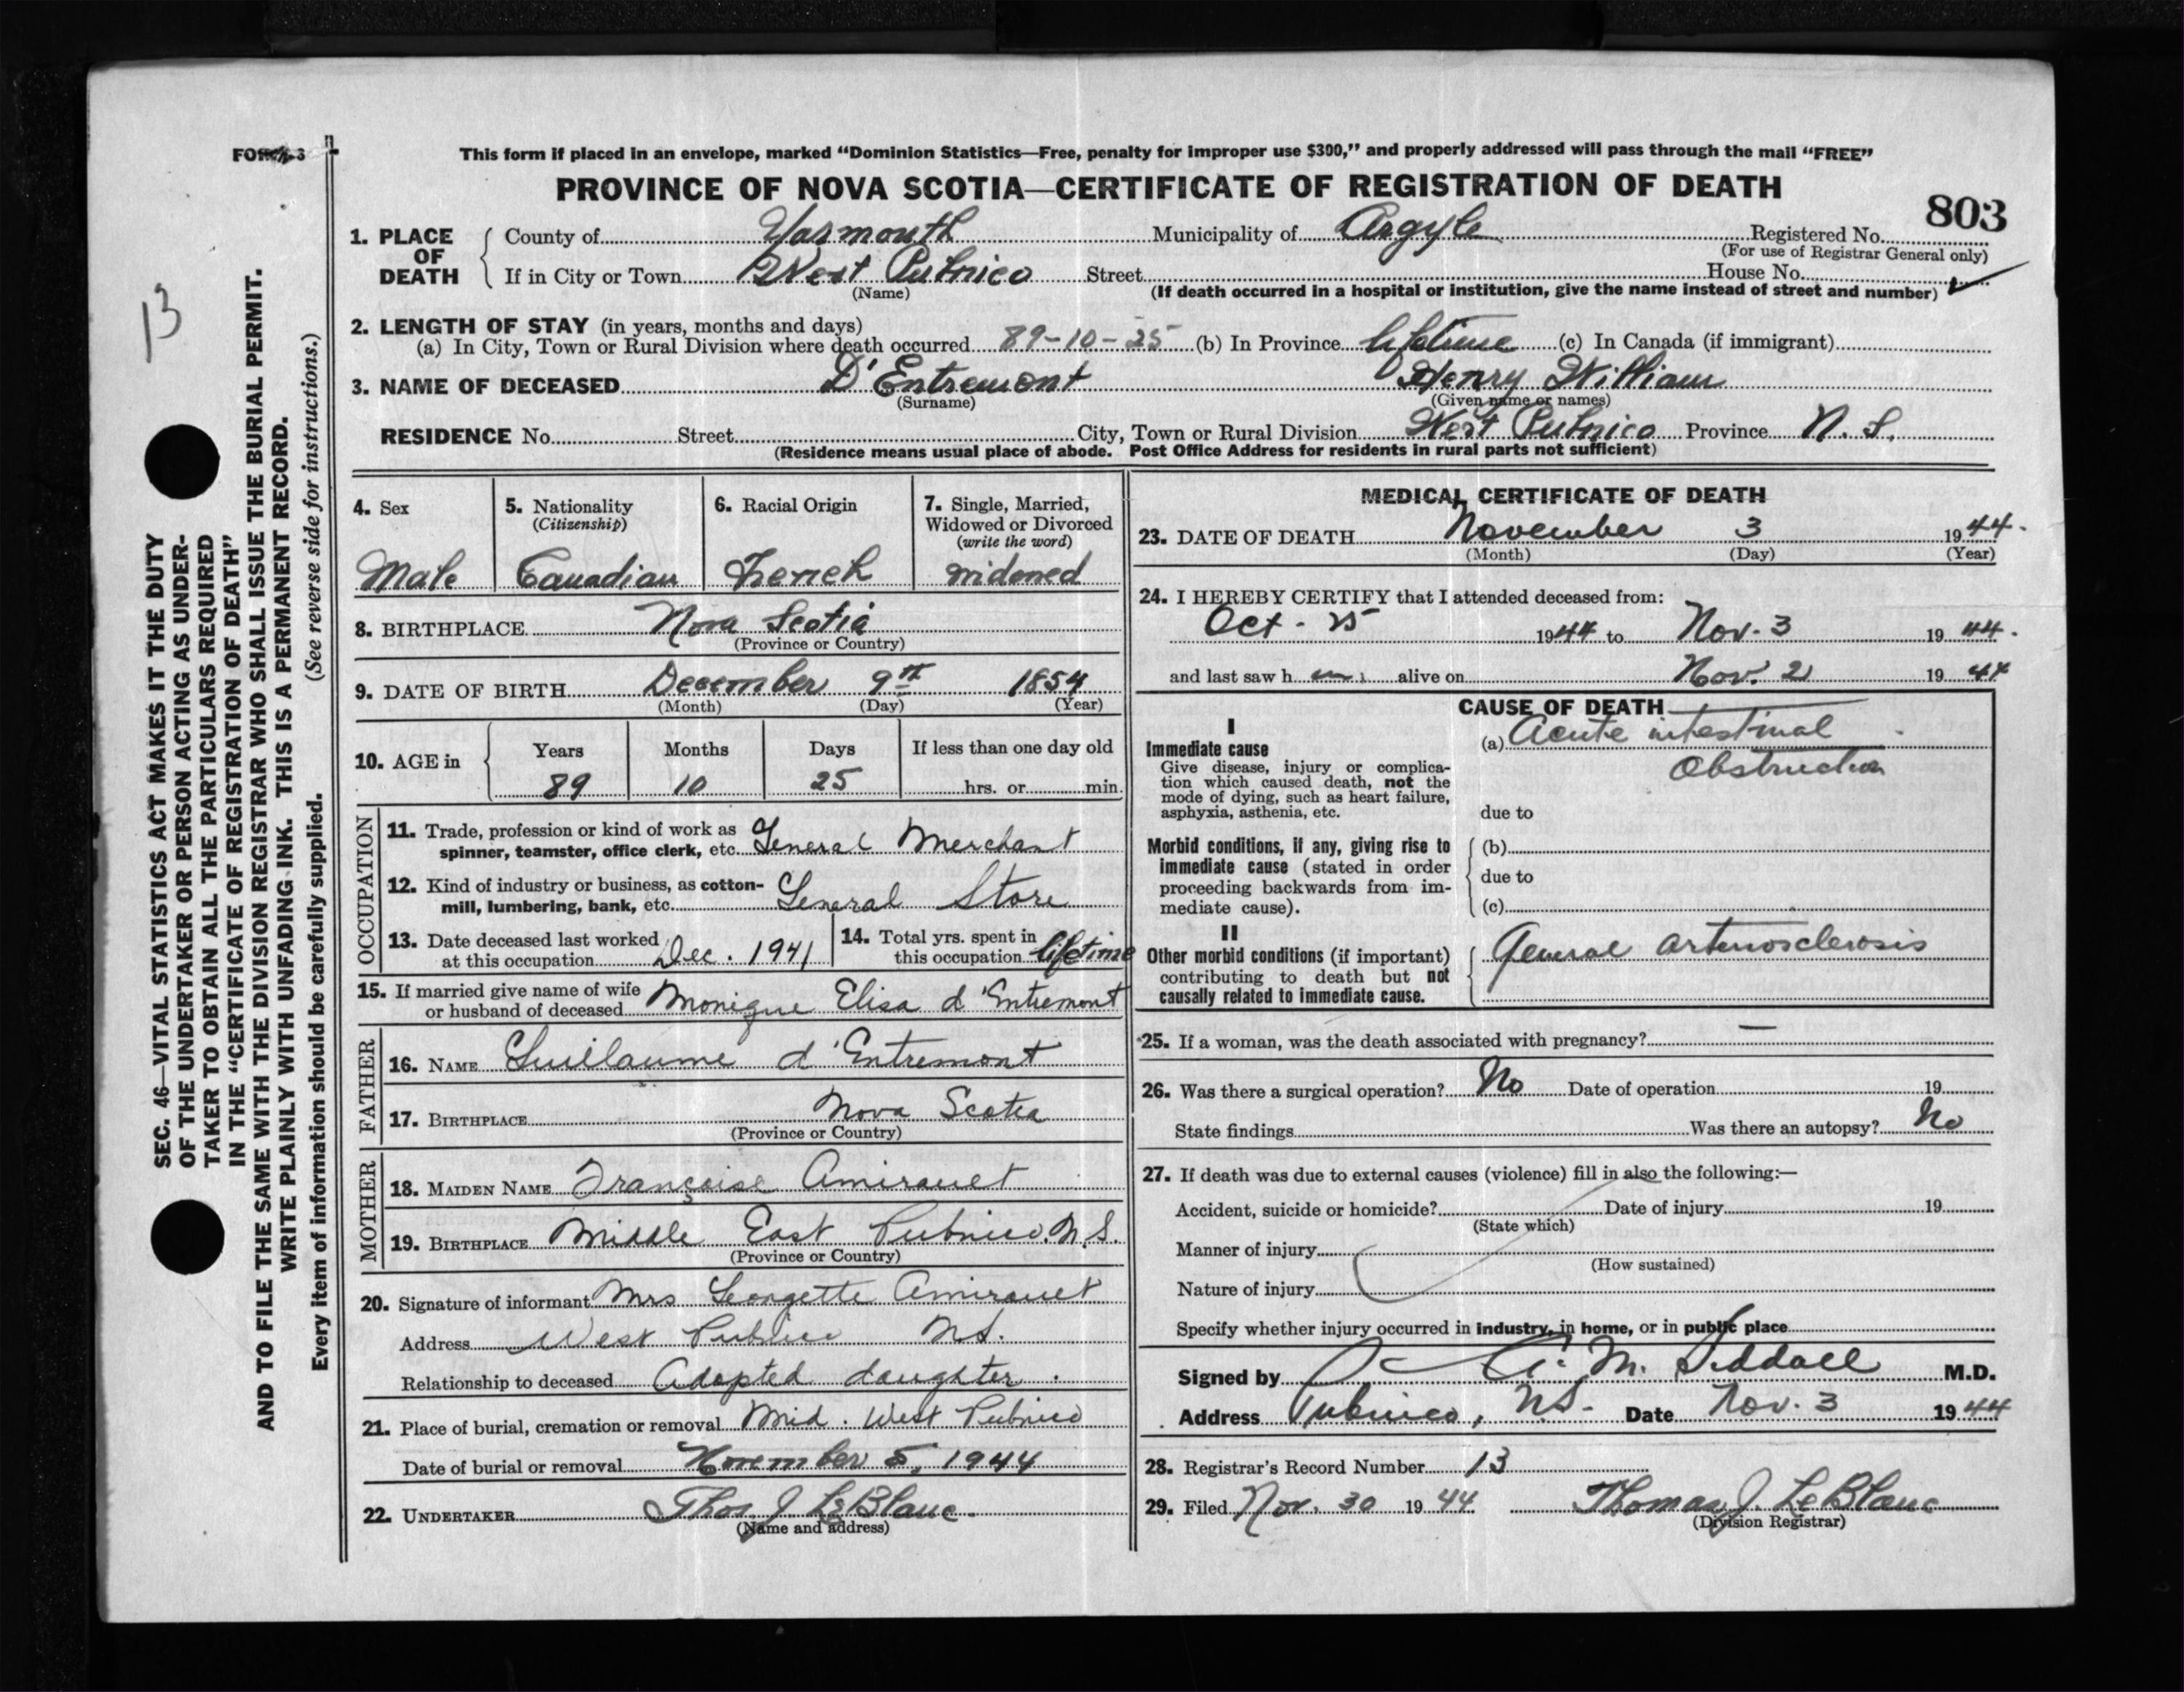 FORM 3
This form if placed in an envelope, marked “Dominion Statistics—Free, penalty for improper use $300,” and properly addressed will pass through the mail “FREE”
PROVINCE OF NOVA SCOTIA—CERTIFICATE OF REGISTRATION OF DEATH
803
1. PLACE OF DEATH
County of Yarmouth Municipality of Argyle Registered No.
(For use of Registrar General only)
If in City or Town West Pubnico Street House No.
(Name)
(If death occurred in a hospital or institution, give the name instead of street and number)
2. LENGTH OF STAY (in years, months and days)
(a) In City, Town or Rural Division where death occurred 89-10-25 (b) In Province lifetime (c) In Canada (if immigrant)
3. NAME OF DECEASED D'Entremont Henry William
(Surname) (Given name or names)
RESIDENCE No. Street City, Town or Rural Division West Pubnico Province N.S.
(Residence means usual place of abode. Post Office Address for residents in rural parts not sufficient)
13
SEC. 46—VITAL STATISTICS ACT MAKES IT THE DUTY
OF THE UNDERTAKER OR PERSON ACTING AS UNDER-
TAKER TO OBTAIN ALL THE PARTICULARS REQUIRED
IN THE “CERTIFICATE OF REGISTRATION OF DEATH”
AND TO FILE THE SAME WITH THE DIVISION REGISTRAR WHO SHALL ISSUE THE BURIAL PERMIT.
WRITE PLAINLY WITH UNFADING INK. THIS IS A PERMANENT RECORD.
Every item of information should be carefully supplied. (See reverse side for instructions.)
4. Sex
Male
5. Nationality
(Citizenship)
Canadian
6. Racial Origin
French
7. Single, Married,
Widowed or Divorced
(write the word)
widowed
8. BIRTHPLACE Nova Scotia
(Province or Country)
9. DATE OF BIRTH December 9th 1854
(Month) (Day) (Year)
10. AGE in
Years Months Days If less than one day old
89 10 25 hrs. or min.
OCCUPATION
11. Trade, profession or kind of work as
spinner, teamster, office clerk, etc. General Merchant
12. Kind of industry or business, as cotton-
mill, lumbering, bank, etc. General Store
13. Date deceased last worked
at this occupation Dec. 1941
14. Total yrs. spent in
this occupation lifetime
15. If married give name of wife
or husband of deceased Monique Elisa d'Entremont
FATHER
16. NAME Guillaume d'Entremont
17. BIRTHPLACE Nova Scotia
(Province or Country)
MOTHER
18. MAIDEN NAME Françoise Amirault
19. BIRTHPLACE Middle East Pubnico. N.S.
(Province or Country)
20. Signature of informant Mrs Georgette Amirault
Address West Pubnico N.S.
Relationship to deceased Adopted daughter.
21. Place of burial, cremation or removal Mid. West Pubnico
Date of burial or removal November 5, 1944
22. UNDERTAKER Thos J. LeBlanc.
(Name and address)
MEDICAL CERTIFICATE OF DEATH
23. DATE OF DEATH November 3 1944.
(Month) (Day) (Year)
24. I HEREBY CERTIFY that I attended deceased from:
Oct. 25 1944 to Nov. 3 1944.
and last saw h im alive on Nov. 2 1944
CAUSE OF DEATH
I
Immediate cause
Give disease, injury or complica-
tion which caused death, not the
mode of dying, such as heart failure,
asphyxia, asthenia, etc.
(a) Acute intestinal
Obstruction
due to
Morbid conditions, if any, giving rise to
immediate cause (stated in order
proceeding backwards from im-
mediate cause).
(b)
due to
(c)
II
Other morbid conditions (if important)
contributing to death but not
causally related to immediate cause.
General arteriosclerosis
25. If a woman, was the death associated with pregnancy? —
26. Was there a surgical operation? No Date of operation 19
State findings Was there an autopsy? No
27. If death was due to external causes (violence) fill in also the following:—
Accident, suicide or homicide? Date of injury 19
(State which)
Manner of injury
(How sustained)
Nature of injury
Specify whether injury occurred in industry, in home, or in public place
Signed by A. M. Siddall M.D.
Address Pubnico, N.S. Date Nov. 3 1944
28. Registrar's Record Number 13
29. Filed Nov. 30 1944 Thomas J. LeBlanc
(Division Registrar)